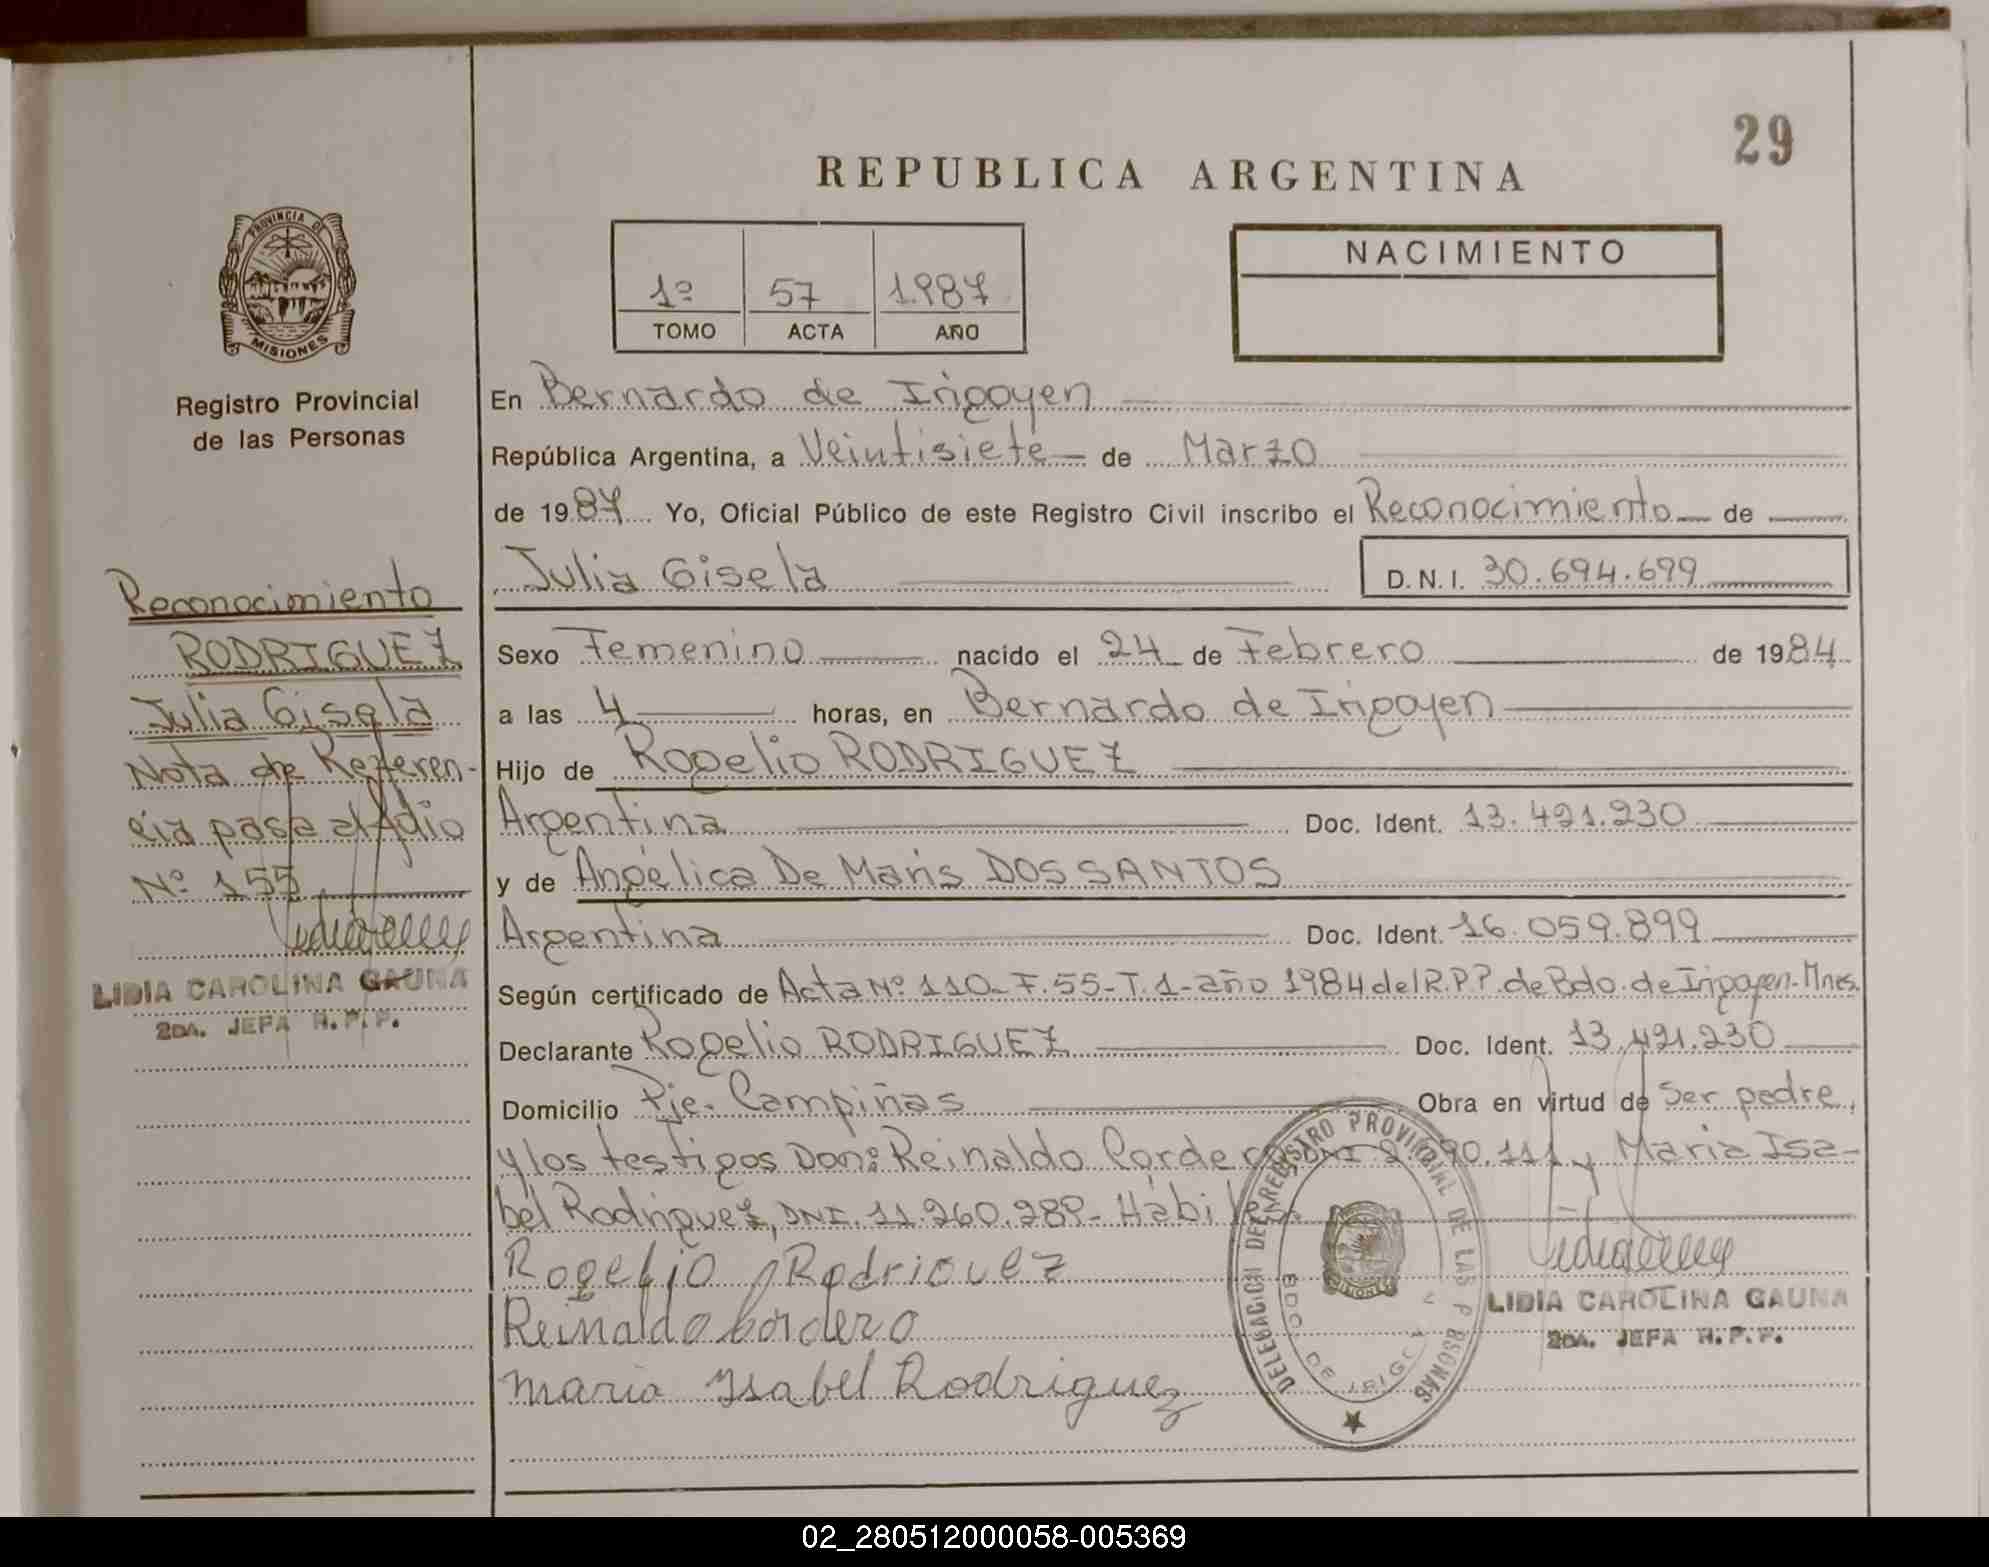 29
REPUBLICA ARGENTINA
PROVINCIA DE
MISIONES
Registro Provincial
de las Personas
1º 57 1.987
TOMO ACTA AÑO
NACIMIENTO
En Bernardo de Irigoyen
República Argentina, a Veintisiete de Marzo
de 1987 Yo, Oficial Público de este Registro Civil inscribo el Reconocimiento de
Julia Gisela D.N.I. 30.694.699
Sexo Femenino nacido el 24 de Febrero de 1984
a las 4 horas, en Bernardo de Irigoyen
Hijo de Rogelio RODRIGUEZ
Argentina Doc. Ident. 13.421.230
y de Angélica De Maris DOS SANTOS
Argentina Doc. Ident. 16.059.899
Según certificado de Acta Nº 110-F.55-T.1-año 1984 del R.P.P. de Bdo. de Irigoyen-Mnes.
Declarante Rogelio RODRIGUEZ Doc. Ident. 13.421.230
Domicilio Pje. Campiñas Obra en virtud de Ser padre,
y los testigos Don: Reinaldo Cordero DNI 90.111 y Maria Isa-
bel Rodriguez, DNI. 11.260.289- Hábiles.
Rogelio Rodriguez
Reinaldo Cordero
Maria Ysabel Rodriguez
Reconocimiento
RODRIGUEZ
Julia Gisela
Nota de Referen-
cia pasa al folio
Nº 155
LIDIA CAROLINA GAUNA
2DA. JEFA R.P.P.
DELEGACION DEL REGISTRO PROVINCIAL DE LAS PERSONAS
LIDIA CAROLINA GAUNA
2DA. JEFA R.P.P.
02_280512000058-005369